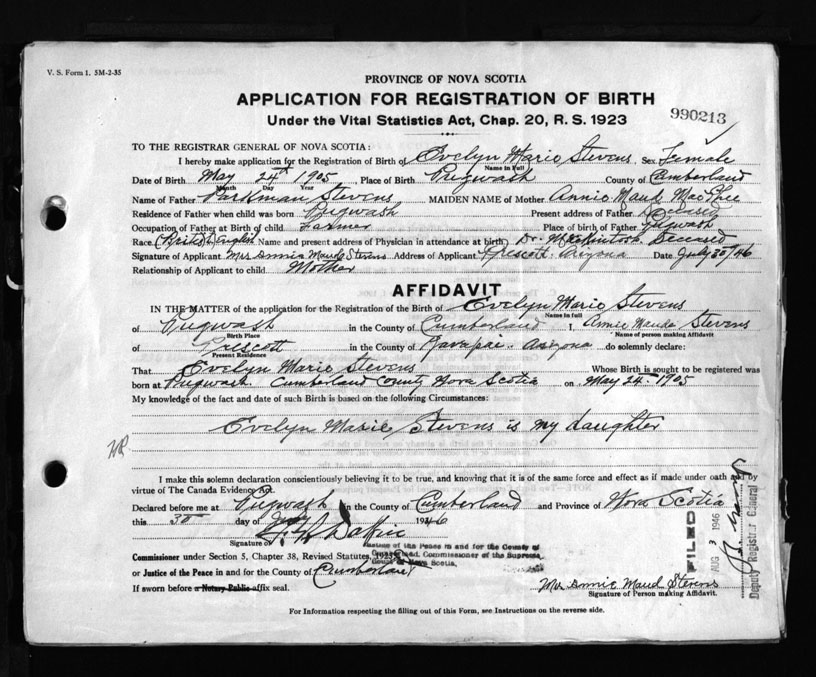 V. S. Form 1. 5M-2-35
PROVINCE OF NOVA SCOTIA
APPLICATION FOR REGISTRATION OF BIRTH
Under the Vital Statistics Act, Chap. 20, R. S. 1923
990213
TO THE REGISTRAR GENERAL OF NOVA SCOTIA:
I hereby make application for the Registration of Birth of Evelyn Marie Stevens, Sex Female
Name in Full
Date of Birth May 24th 1905 Place of Birth Pugwash County of Cumberland
Month Day Year
Name of Father Parkman Stevens MAIDEN NAME of Mother Annie Maud MacPhee
Residence of Father when child was born Pugwash Present address of Father Deceased
Occupation of Father at Birth of child Farmer Place of birth of Father Pugwash
Race (British) English Name and present address of Physician in attendance at birth Dr. Mackintosh Deceased
Signature of Applicant Mrs Annie Maud Stevens Address of Applicant Prescott Arizona Date July 30/46
Relationship of Applicant to child Mother
AFFIDAVIT
IN THE MATTER of the application for the Registration of the Birth of Evelyn Marie Stevens
Name in full
of Pugwash in the County of Cumberland I, Annie Maude Stevens
Birth Place Name of person making Affidavit
of Prescott in the County of Yavapai Arizona do solemnly declare:
Present Residence
That Evelyn Marie Stevens Whose Birth is sought to be registered was
born at Pugwash Cumberland County Nova Scotia on May 24-1905
My knowledge of the fact and date of such Birth is based on the following Circumstances:
Evelyn Marie Stevens is my daughter
I make this solemn declaration conscientiously believing it to be true, and knowing that it is of the same force and effect as if made under oath and by
virtue of The Canada Evidence Act.
Declared before me at Pugwash in the County of Cumberland and Province of Nova Scotia
this 30 day of July 1946
Signature of
Justice of the Peace in and for the County of
Commissioner under Section 5, Chapter 38, Revised Statutes, 1923
Cumberland. Commissioner of the Supreme
Court of Nova Scotia.
or Justice of the Peace in and for the County of Cumberland
If sworn before a Notary Public affix seal.
Mrs Annie Maud Stevens
Signature of Person making Affidavit.
FILED
AUG 3 1946
Deputy Registrar General
For Information respecting the filling out of this Form, see Instructions on the reverse side.